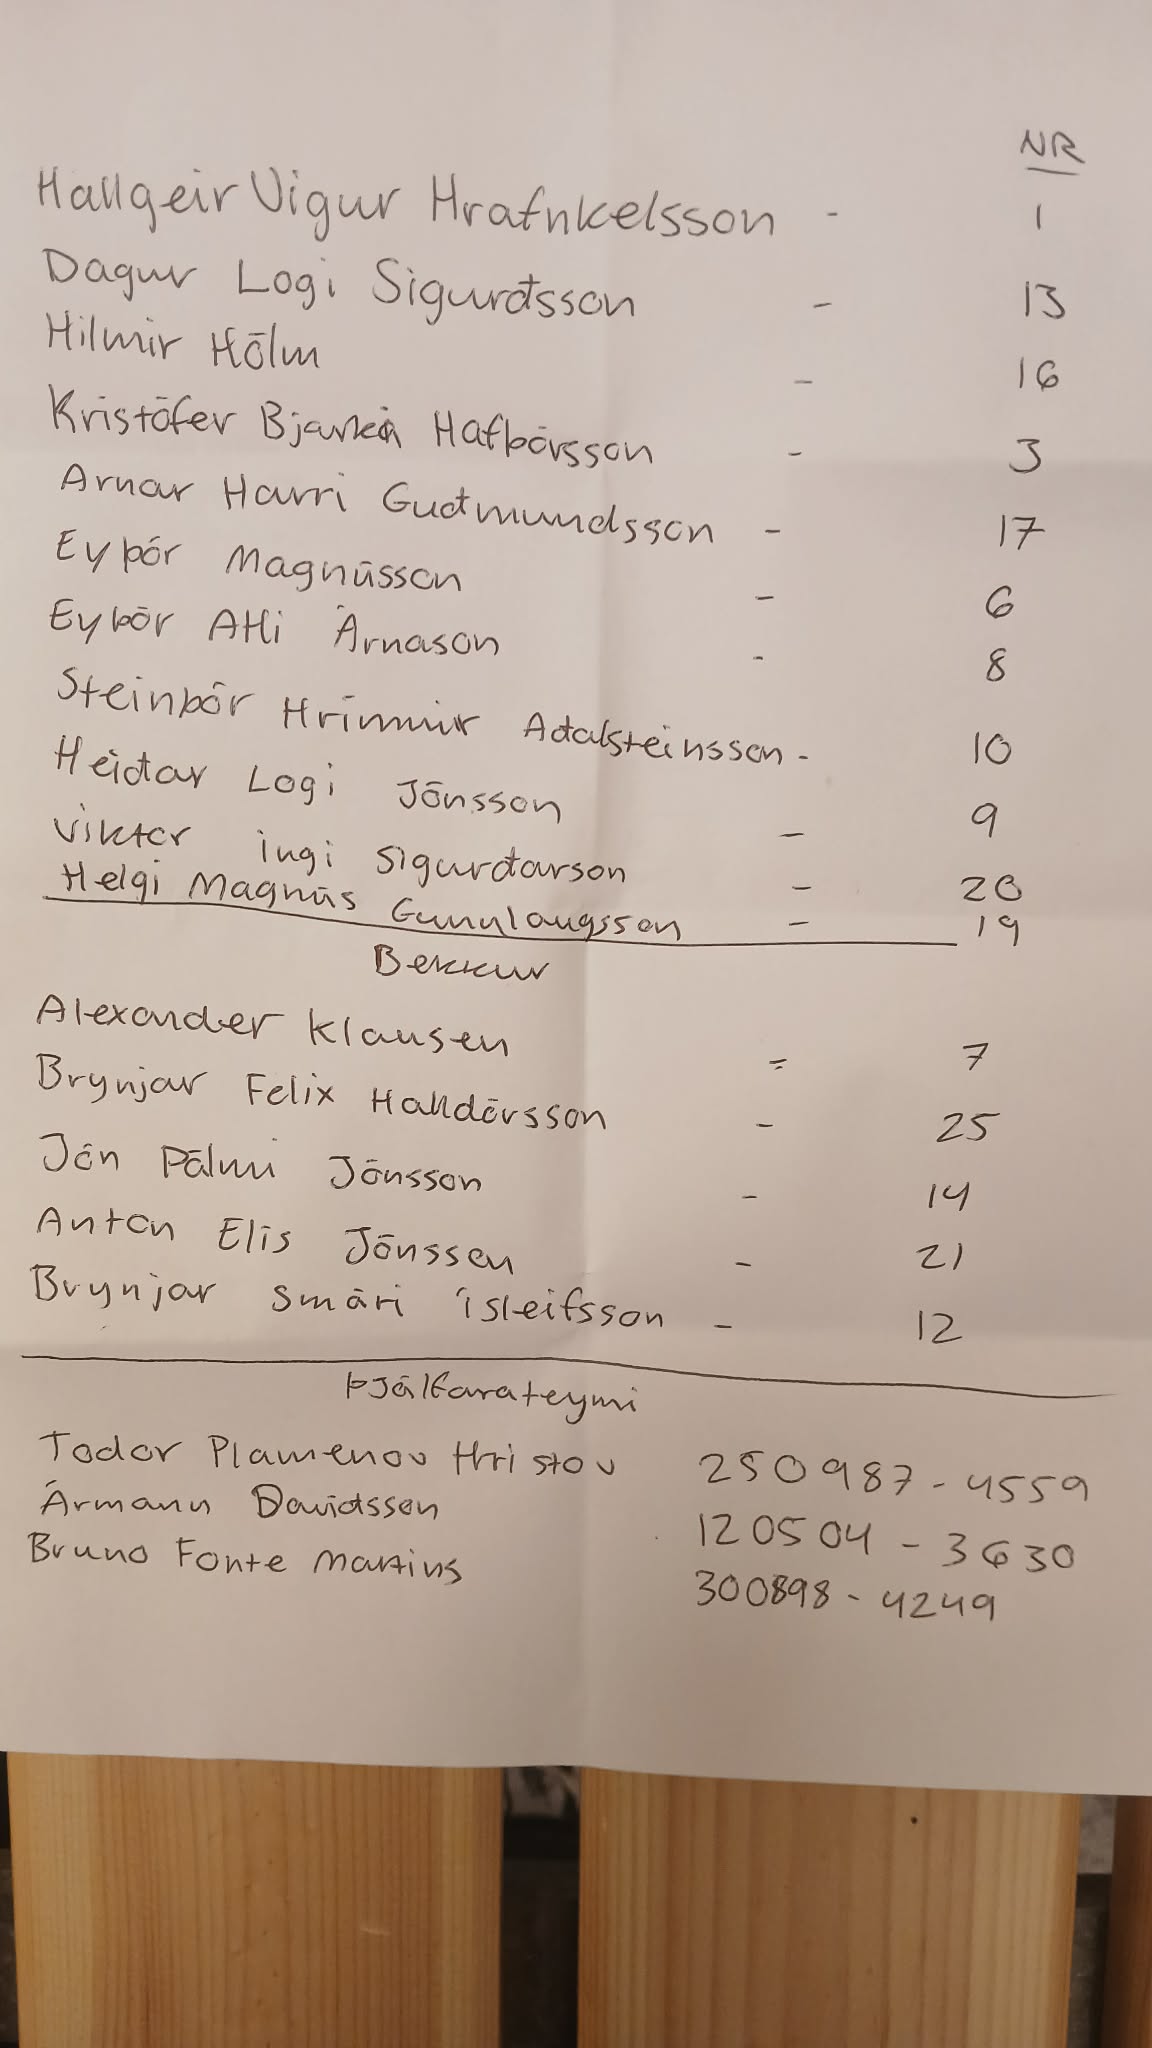 NR
Hallgeir Vigur Hrafnkelsson - 1
Dagur Logi Sigurðsson - 13
Hilmir Hólm - 16
Kristófer Bjarki Hafþórsson - 3
Arnar Harri Guðmundsson - 17
Eyþór Magnússon - 6
Eyþór Atli Árnason - 8
Steinþór Hrímnir Aðalsteinsson - 10
Heiðar Logi Jónsson - 9
Viktor Ingi Sigurðarson - 20
Helgi Magnús Gunnlaugsson - 19
Bekkur
Alexander Klausen - 7
Brynjar Felix Halldórsson - 25
Jón Pálmi Jónsson - 14
Anton Elis Jónsson - 21
Brynjar Smári Ísleifsson - 12
Þjálfarateymi
Todor Plamenov Hristov 250987-4559
Ármann Davíðsson 120504-3630
Bruno Fonte Martins 300898-4249